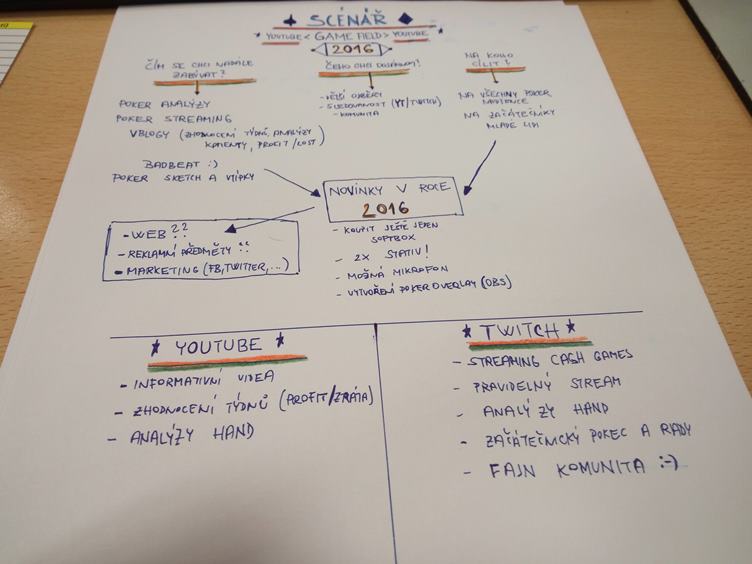 SCÉNÁŘ
YOUTUBE < GAME FIELD > YOUTUBE
2016
ČÍM SE CHCI NADÁLE
ZABÝVAT?
POKER ANALÝZY
POKER STREAMING
VBLOGY (ZHODNOCENÍ TÝDNŮ, ANALÝZY
KOMENTY, PROFIT/LOST)
BADBEAT :)
POKER SKETCH A VTÍPKY
ČEHO CHCI DOSÁHNOUT?
- VĚTŠÍ ODBĚRY
- SLEDOVANOST (YT/TWITCH)
- KOMUNITA
NA KOHO
CÍLIT?
NA VŠECHNY POKER
NADŠENCE
NA ZAČÁTEČNÍKY
MLADÉ LIDI
NOVINKY V ROCE
2016
- KOUPIT JEŠTĚ JEDEN
SOFTBOX
- 2X STATIV!
- MOŽNÁ MIKROFON
- VYTVOŘENÍ POKER OVERLAY (OBS)
- WEB ??
- REKLAMNÍ PŘEDMĚTY ??
- MARKETING (FB, TWITTER, ...)
* YOUTUBE *
- INFORMATIVNÍ VIDEA
- ZHODNOCENÍ TÝDNŮ (PROFIT/ZTRÁTA)
- ANALÝZY HAND
* TWITCH *
- STREAMING CASH GAMES
- PRAVIDELNÝ STREAM
- ANALÝZY HAND
- ZAČÁTEČNICKÝ POKEC A RADY
- FAJN KOMUNITA :-)